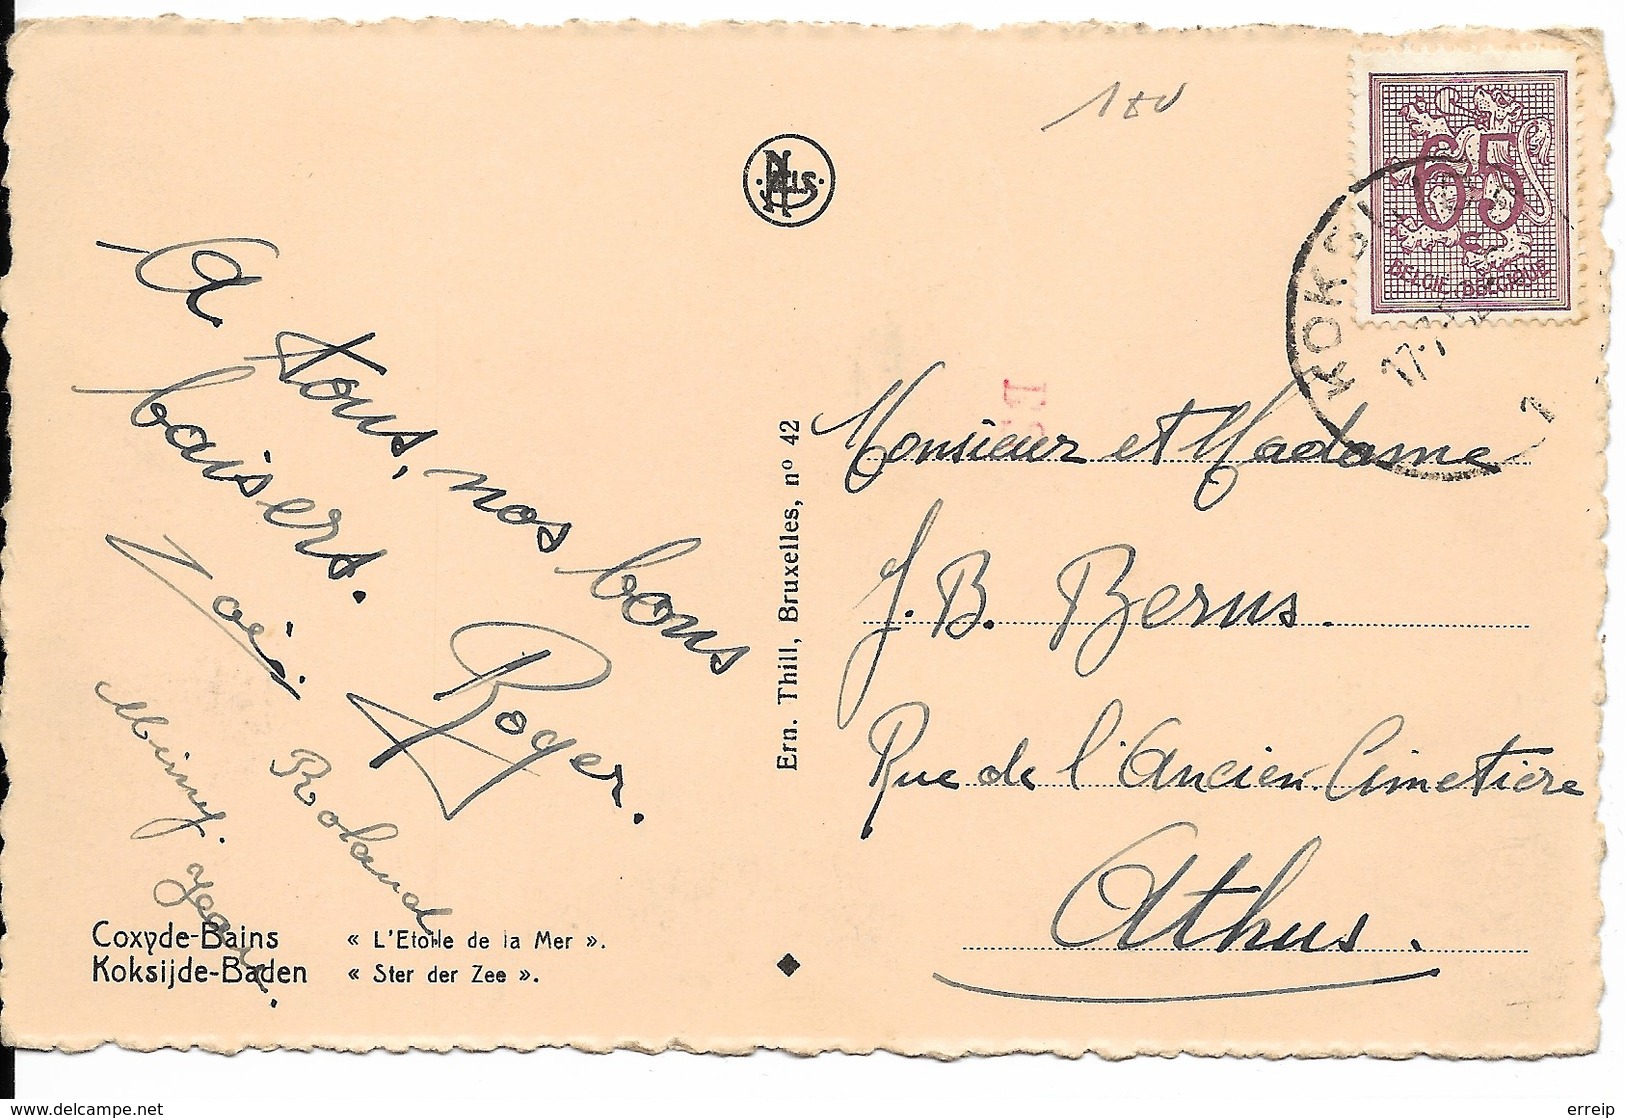 A tous, nos bons
baisers.
Zoé
Roger.
Roland
Mimy
Jean.
Coxyde-Bains « L'Etoile de la Mer ».
Koksijde-Baden « Ster der Zee ».
Ern. Thill, Bruxelles, nº 42
NELS
180
65
BELGIË BELGIQUE
KOKSIJ
17-7
1
Monsieur et Madame
J. B. Berns.
Rue de l'Ancien Cimetière
Athus.
www.delcampe.net
erreip